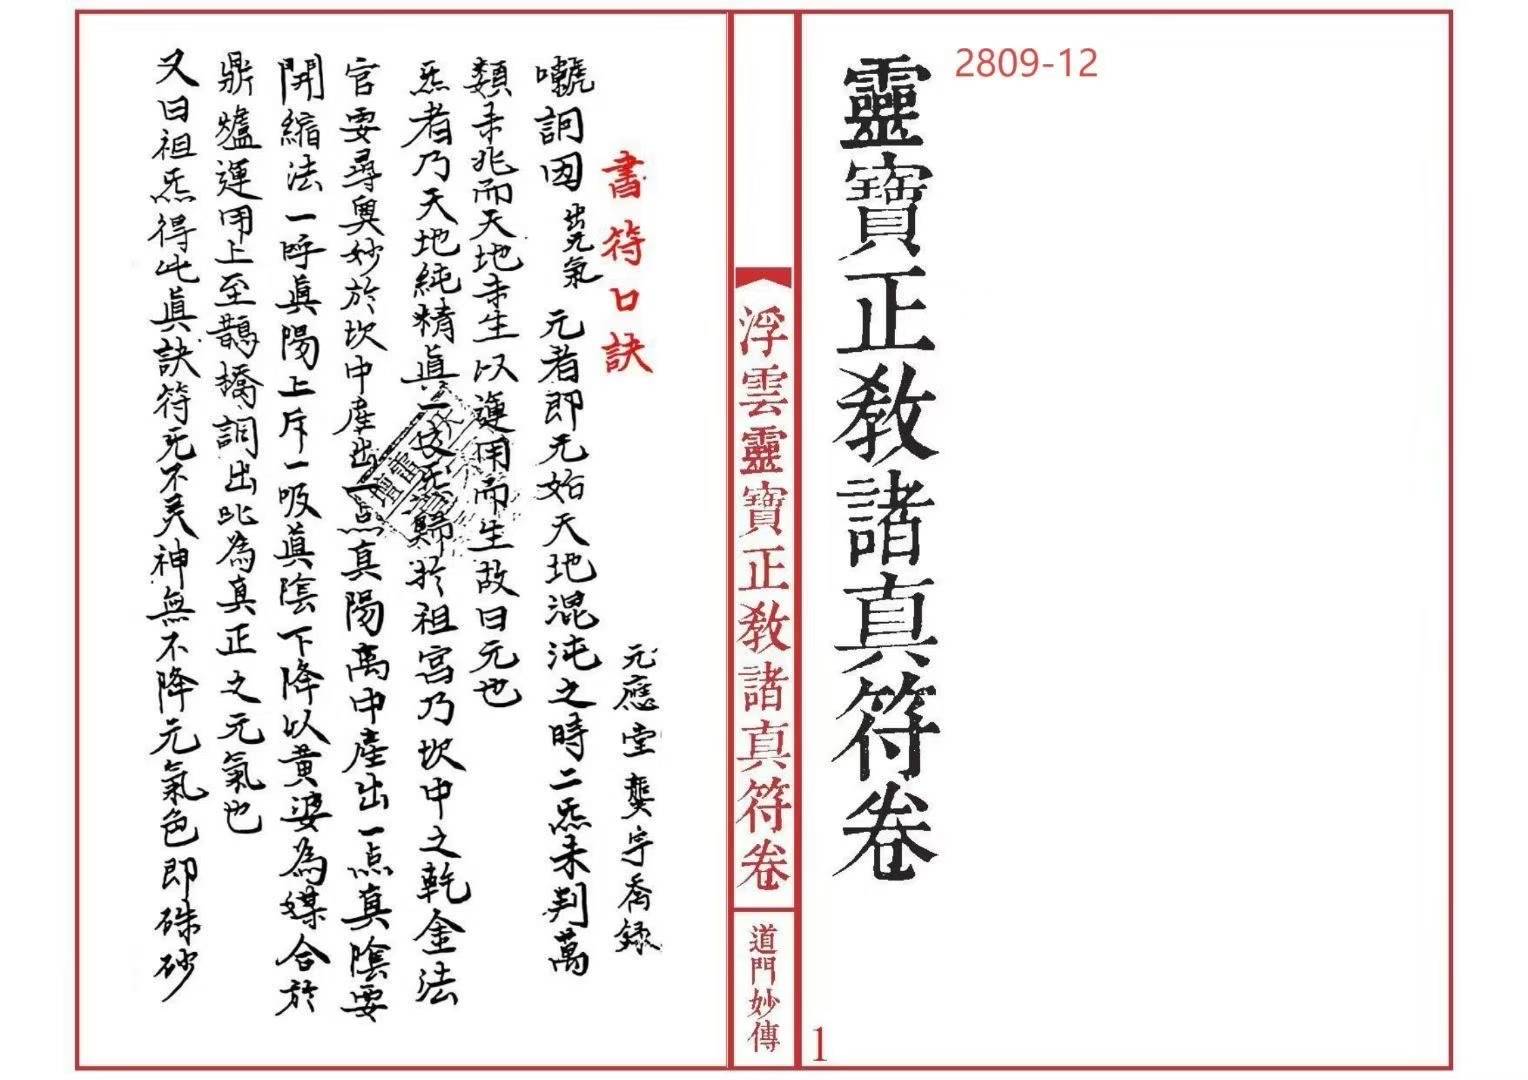 2809-12
靈寶正教諸真符卷
1
浮雲靈寶正教諸真符卷
道門妙傳
書符口訣
元應堂龔宇喬錄
嗽詞囡出元氣元者即元始天地混沌之時二炁未判萬
類未兆而天地未生以運用而生故曰元也
炁者乃天地純精真一炁歸於祖宮乃坎中之乾金法
官要尋奧妙於坎中產出一点真陽离中產出一点真陰要
開縮法一呼真陽上斥一吸真陰下降以黄婆為媒合於
鼎爐運用上至鵲橋詞出此為真正之元氣也
又曰祖炁得此真訣符死不灵神無不降元氣色即硃砂